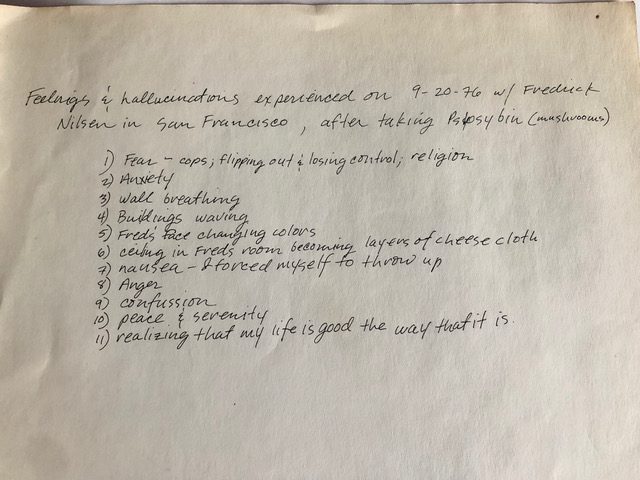 Feelings & hallucinations experienced on 9-20-76 w/ Fredrick
Nilsen in San Francisco, after taking Psipsybin (mushrooms)
1) Fear - cops; flipping out & losing control; religion
2) Anxiety
3) Wall breathing
4) Buildings waving
5) Fred's face changing colors
6) ceiling in Freds room becoming layers of cheese cloth
7) nausea - I forced myself to throw up
8) Anger
9) confussion
10) peace & serenity
11) realizing that my life is good the way that it is.